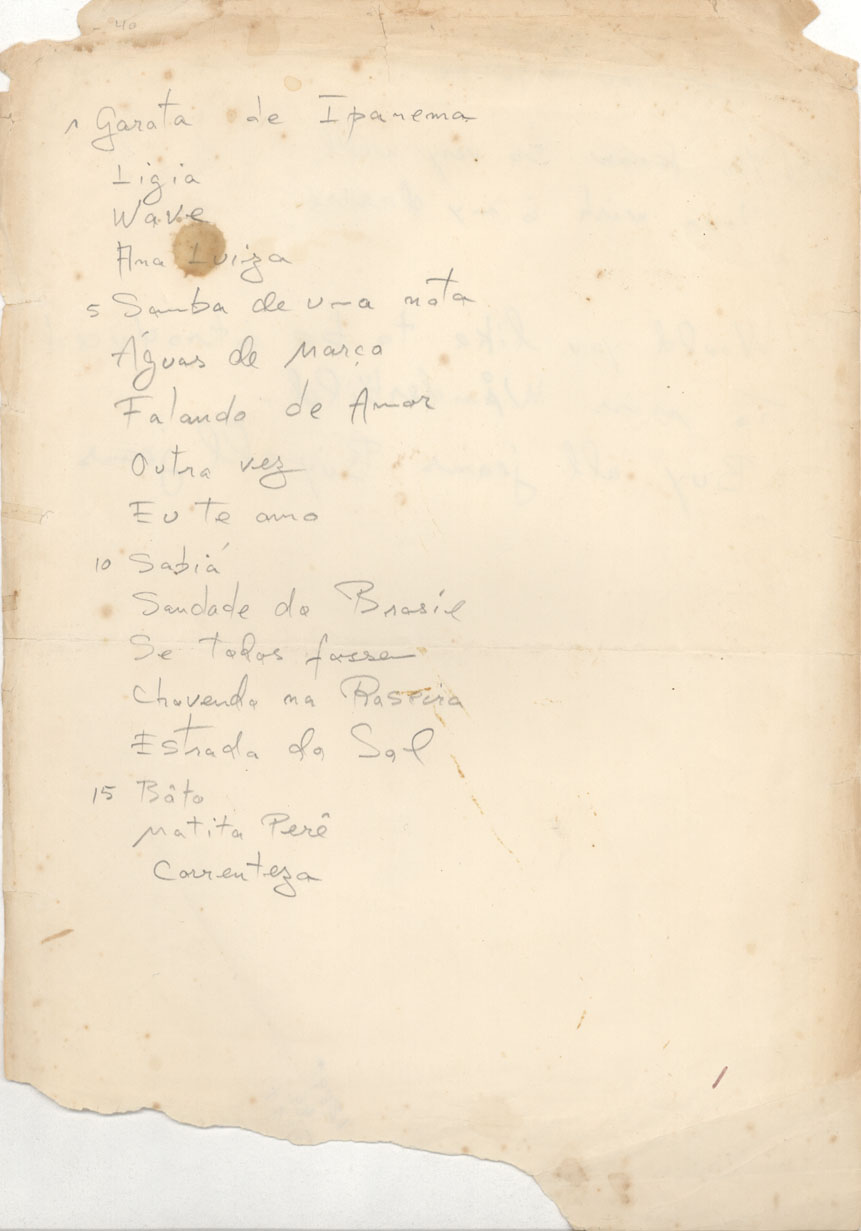 40
1 Garota de Ipanema
Ligia
Wave
Ana Luiza
5 Samba de uma nota
Águas de Março
Falando de Amor
Outra vez
Eu te amo
10 Sabiá
Saudade do Brasil
Se todos fossem
Chovendo na Roseira
Estrada do Sol
15 Bôto
Matita Perê
Correnteza